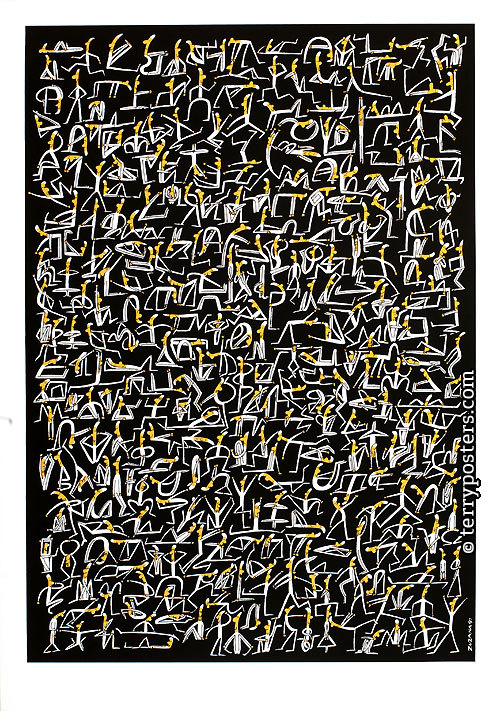 © terryposters.com